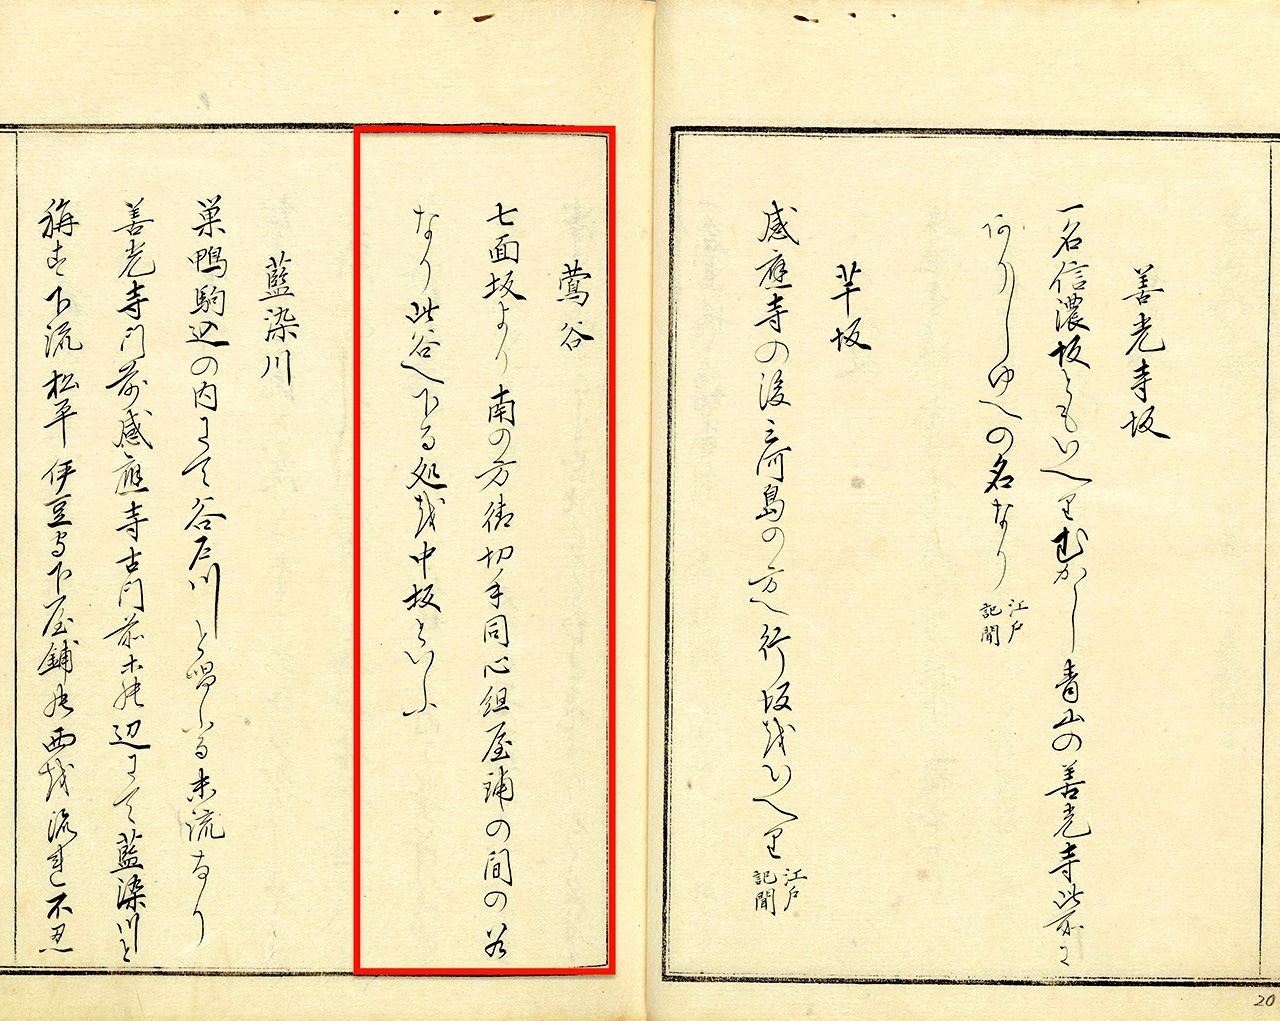 善光寺坂
一名信濃坂ともいへりむかし青山の善光寺此所に
ありしゆへの名なり
江戸
記聞
芋坂
感應寺の後三河島の方へ行坂越いへり
江戸
記聞
鶯谷
七面坂より南の方御切手同心組屋鋪の間の谷
なり此谷へ下る処越中坂といふ
藍染川
巣鴨駒込の内にて谷戸川と唱ふる末流なり
善光寺門前感應寺古門前木戸辺にて藍染川と
稱す下流松平伊豆守下屋鋪の西越流れ不忍
20